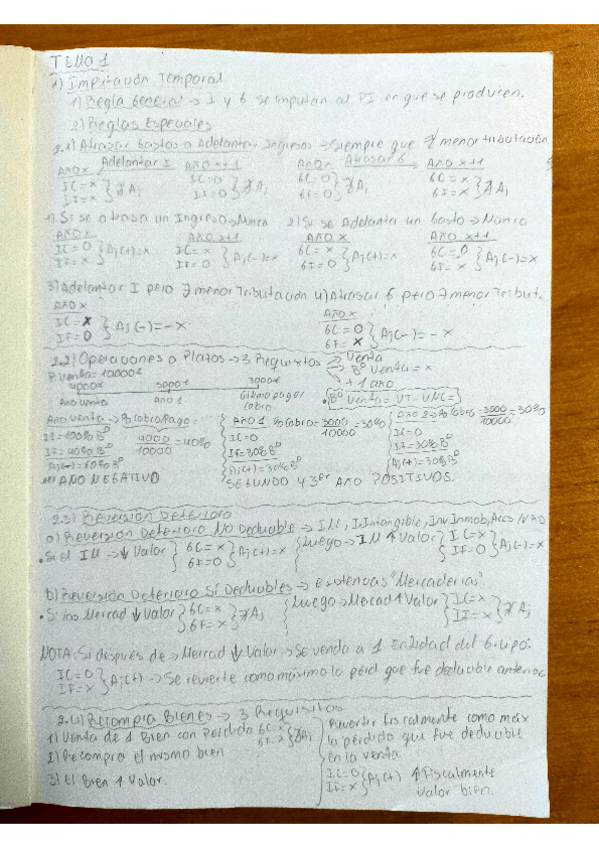 TEMA 1
1) Imputación Temporal
1) Regla General → I y G se imputan al PI en que se producen.
2) Reglas Especiales
2.1) Atrasar Gastos o Adelantar Ingresos → Siempre que ∄ menor tributación
Adelantar I Atrasar G
AÑO X AÑO X+1 AÑO X AÑO X+1
IC=X IF=X } ∄ Aj IC=0 IF=0 } ∄ Aj GC=0 GF=0 } ∄ Aj GC=X GF=X } ∄ Aj
1) Si se atrasa un Ingreso → Nunca 2) Si se Adelanta un Gasto → Nunca
AÑO X AÑO X+1 AÑO X AÑO X+1
IC=0 IF=X } Aj(+)=X IC=X IF=0 } Aj(-)=X GC=X GF=0 } Aj(+)=X GC=0 GF=X } Aj(-)=X
3) Adelantar I pero ∃ menor Tributación 4) Atrasar G pero ∃ menor Tribut.
AÑO X AÑO X
IC=X IF=0 } Aj(-)=-X GC=0 GF=X } Aj(-)=-X
2.2) Operaciones a Plazos → 3 Requisitos → Venta
→ Bº Venta = X
→ +1 año
P. Venta = 10000€
4000€ 3000€ 3000€
Año Venta Año 1 Último pago/cobro
• Bº Venta = VT - VNC
Año Venta → %Cobro/Pago = 4000/10000 = 40%
IC=100%Bº
IF=40%Bº
Aj(-)=60%Bº
1er AÑO NEGATIVO
AÑO 1 %Cobro = 3000/10000 = 30%
IC=0
IF=30%Bº
Aj(+)=30%Bº
AÑO 2 → %Cobro = 3000/10000 = 30%
IC=0
IF=30%Bº
Aj(+)=30%Bº
SEGUNDO Y 3er AÑO POSITIVOS.
2.3) Reversión Deterioro
a) Reversión Deterioro NO Deducible → IM, I.Intangible, Inv Inmob, Accs
• Si el IM → ↓ Valor { GC=X GF=0 } Aj(+)=X { Luego → IM ↑ Valor { IC=X IF=0 } Aj(-)=X
b) Reversión Deterioro Sí Deducibles → Existencias "Mercaderías"
• Si las Mercad ↓ Valor { GC=X GF=X } ∄ Aj { Luego → Mercad ↑ Valor { IC=X IF=X } ∄ Aj
NOTA: Si después de → Mercad ↓ Valor → Se venda a 1 Entidad del Grupo:
IC=0 IF=X } Aj(+) → Se revierte como máximo la pérd que fue deducible anterior
2.4) Recompra Bienes → 3 Requisitos
1) Venta de 1 Bien con Pérdida GC=X GF=X } ∄ Aj
2) Recompra el mismo bien
3) El Bien ↑ Valor.
Revertir fiscalmente como máx
la pérdida que fue deducible
en la venta.
IC=0 IF=X } Aj(+) ↑ Fiscalmente
valor bien.